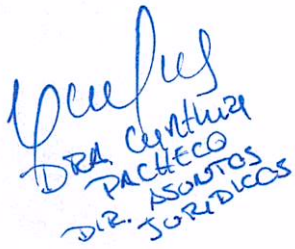 DRA. CYNTHIA
PACHECO
DIR. ASONTOS
JORIDICOS